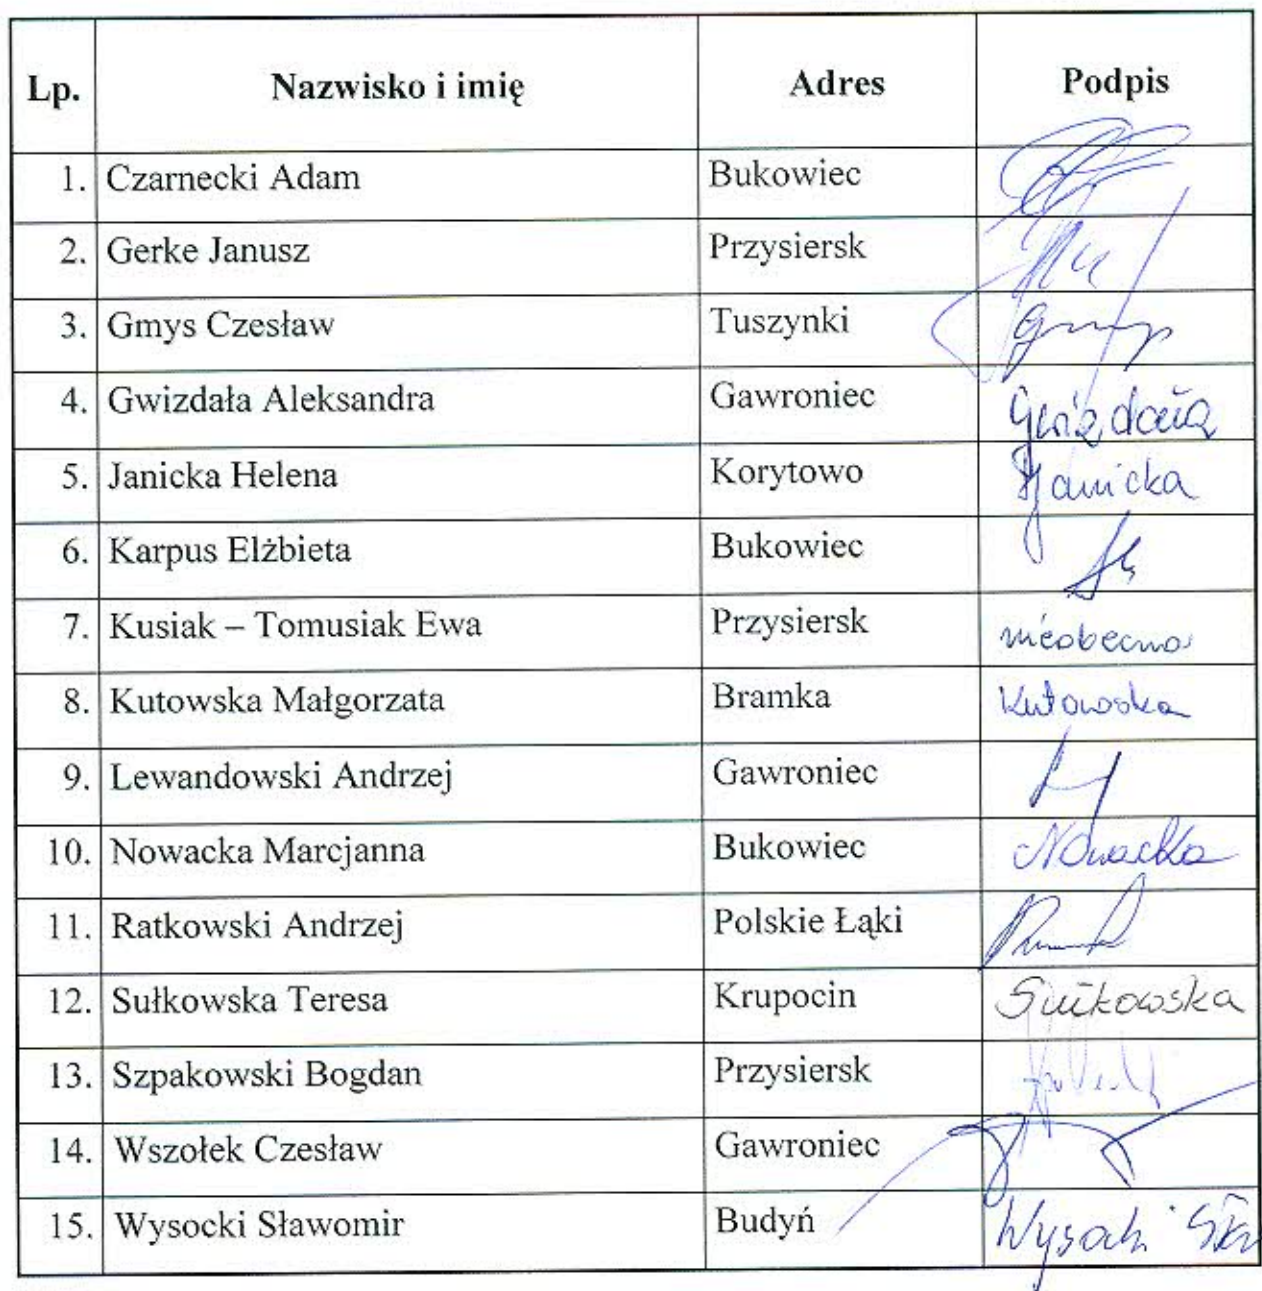 Lp. Nazwisko i imię Adres Podpis
1. Czarnecki Adam Bukowiec
2. Gerke Janusz Przysiersk
3. Gmys Czesław Tuszynki Gmys
4. Gwizdała Aleksandra Gawroniec Gwizdała
5. Janicka Helena Korytowo HJanicka
6. Karpus Elżbieta Bukowiec
7. Kusiak – Tomusiak Ewa Przysiersk nieobecna
8. Kutowska Małgorzata Bramka Kutowska
9. Lewandowski Andrzej Gawroniec
10. Nowacka Marcjanna Bukowiec Nowacka
11. Ratkowski Andrzej Polskie Łąki
12. Sułkowska Teresa Krupocin Sułkowska
13. Szpakowski Bogdan Przysiersk
14. Wszołek Czesław Gawroniec
15. Wysocki Sławomir Budyń Wysocki Sław